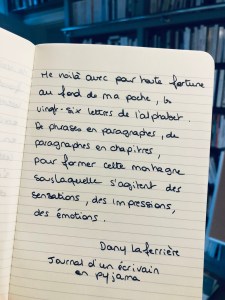 Me voilà avec pour toute fortune
au fond de ma poche, les
vingt-six lettres de l'alphabet.
De phrases en paragraphes, de
paragraphes en chapitres,
pour former cette montagne
sous laquelle s'agitent des
sensations, des impressions,
des émotions.
Dany Laferrière
Journal d'un écrivain
en pyjama